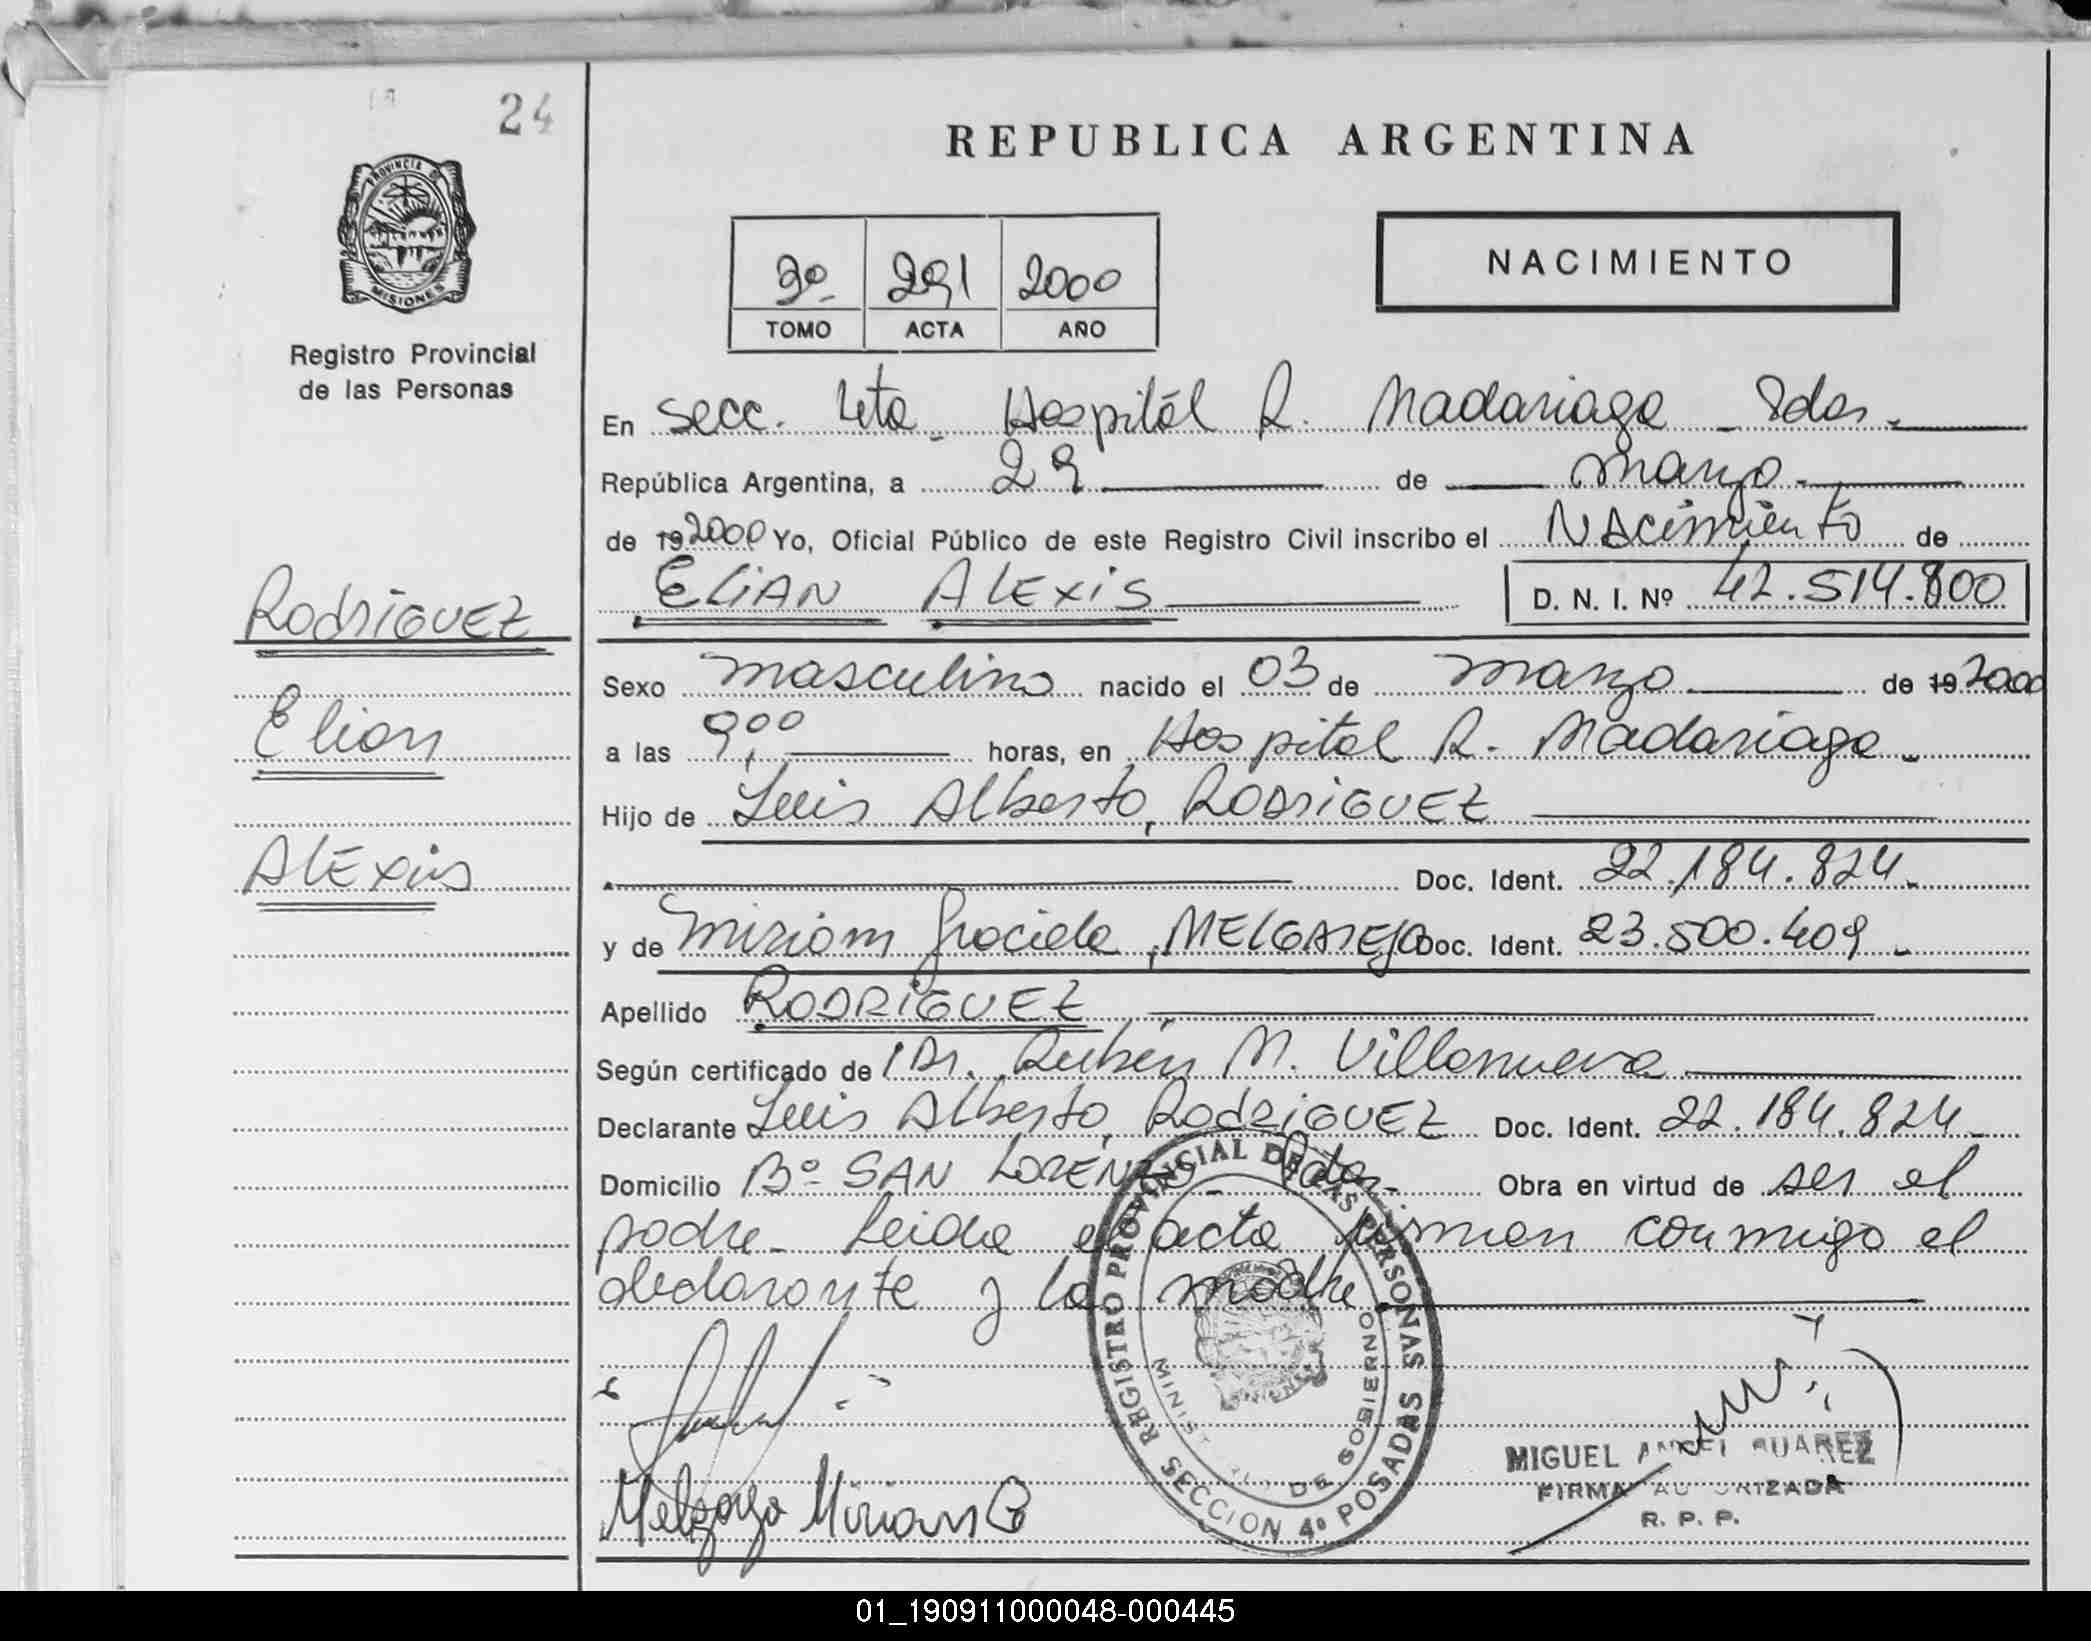 24
PROVINCIA DE
MISIONES
Registro Provincial
de las Personas
RODRIGUEZ
Elian
ALExis
REPUBLICA ARGENTINA
2º 291 2000
TOMO ACTA AÑO
NACIMIENTO
En Secc. 4ta. Hospitál R. Madariaga - Pdas.
República Argentina, a 29 de marzo.
de 19 2000 Yo, Oficial Público de este Registro Civil inscribo el NAcimiento de
ELiAN ALExiS D. N. I. Nº 42.514.800
Sexo masculino nacido el 03 de marzo de 19 2000
a las 9,00 horas, en Hospital R. Madariaga.
Hijo de Luis Alberto, RODRiGUEZ
Doc. Ident. 22.184.824.
y de Miriam Graciela, MELGAREJO Doc. Ident. 23.500.409.
Apellido RODRiGUEZ
Según certificado de Dr. Rubén M. Villanueva
Declarante Luis Alberto, RODRiGUEZ Doc. Ident. 22.184.824.
Domicilio Bº SAN LORENZO - Pdas. Obra en virtud de ser el
padre. Leida el acta firman conmigo el
declarante y la madre
REGISTRO PROVINCIAL DE LAS PERSONAS
MINISTERIO DE GOBIERNO
SECCION 4º POSADAS
Melgarejo Miriam G
MIGUEL ANGEL SUAREZ
FIRMA AUTORIZADA
R. P. P.
01_190911000048-000445